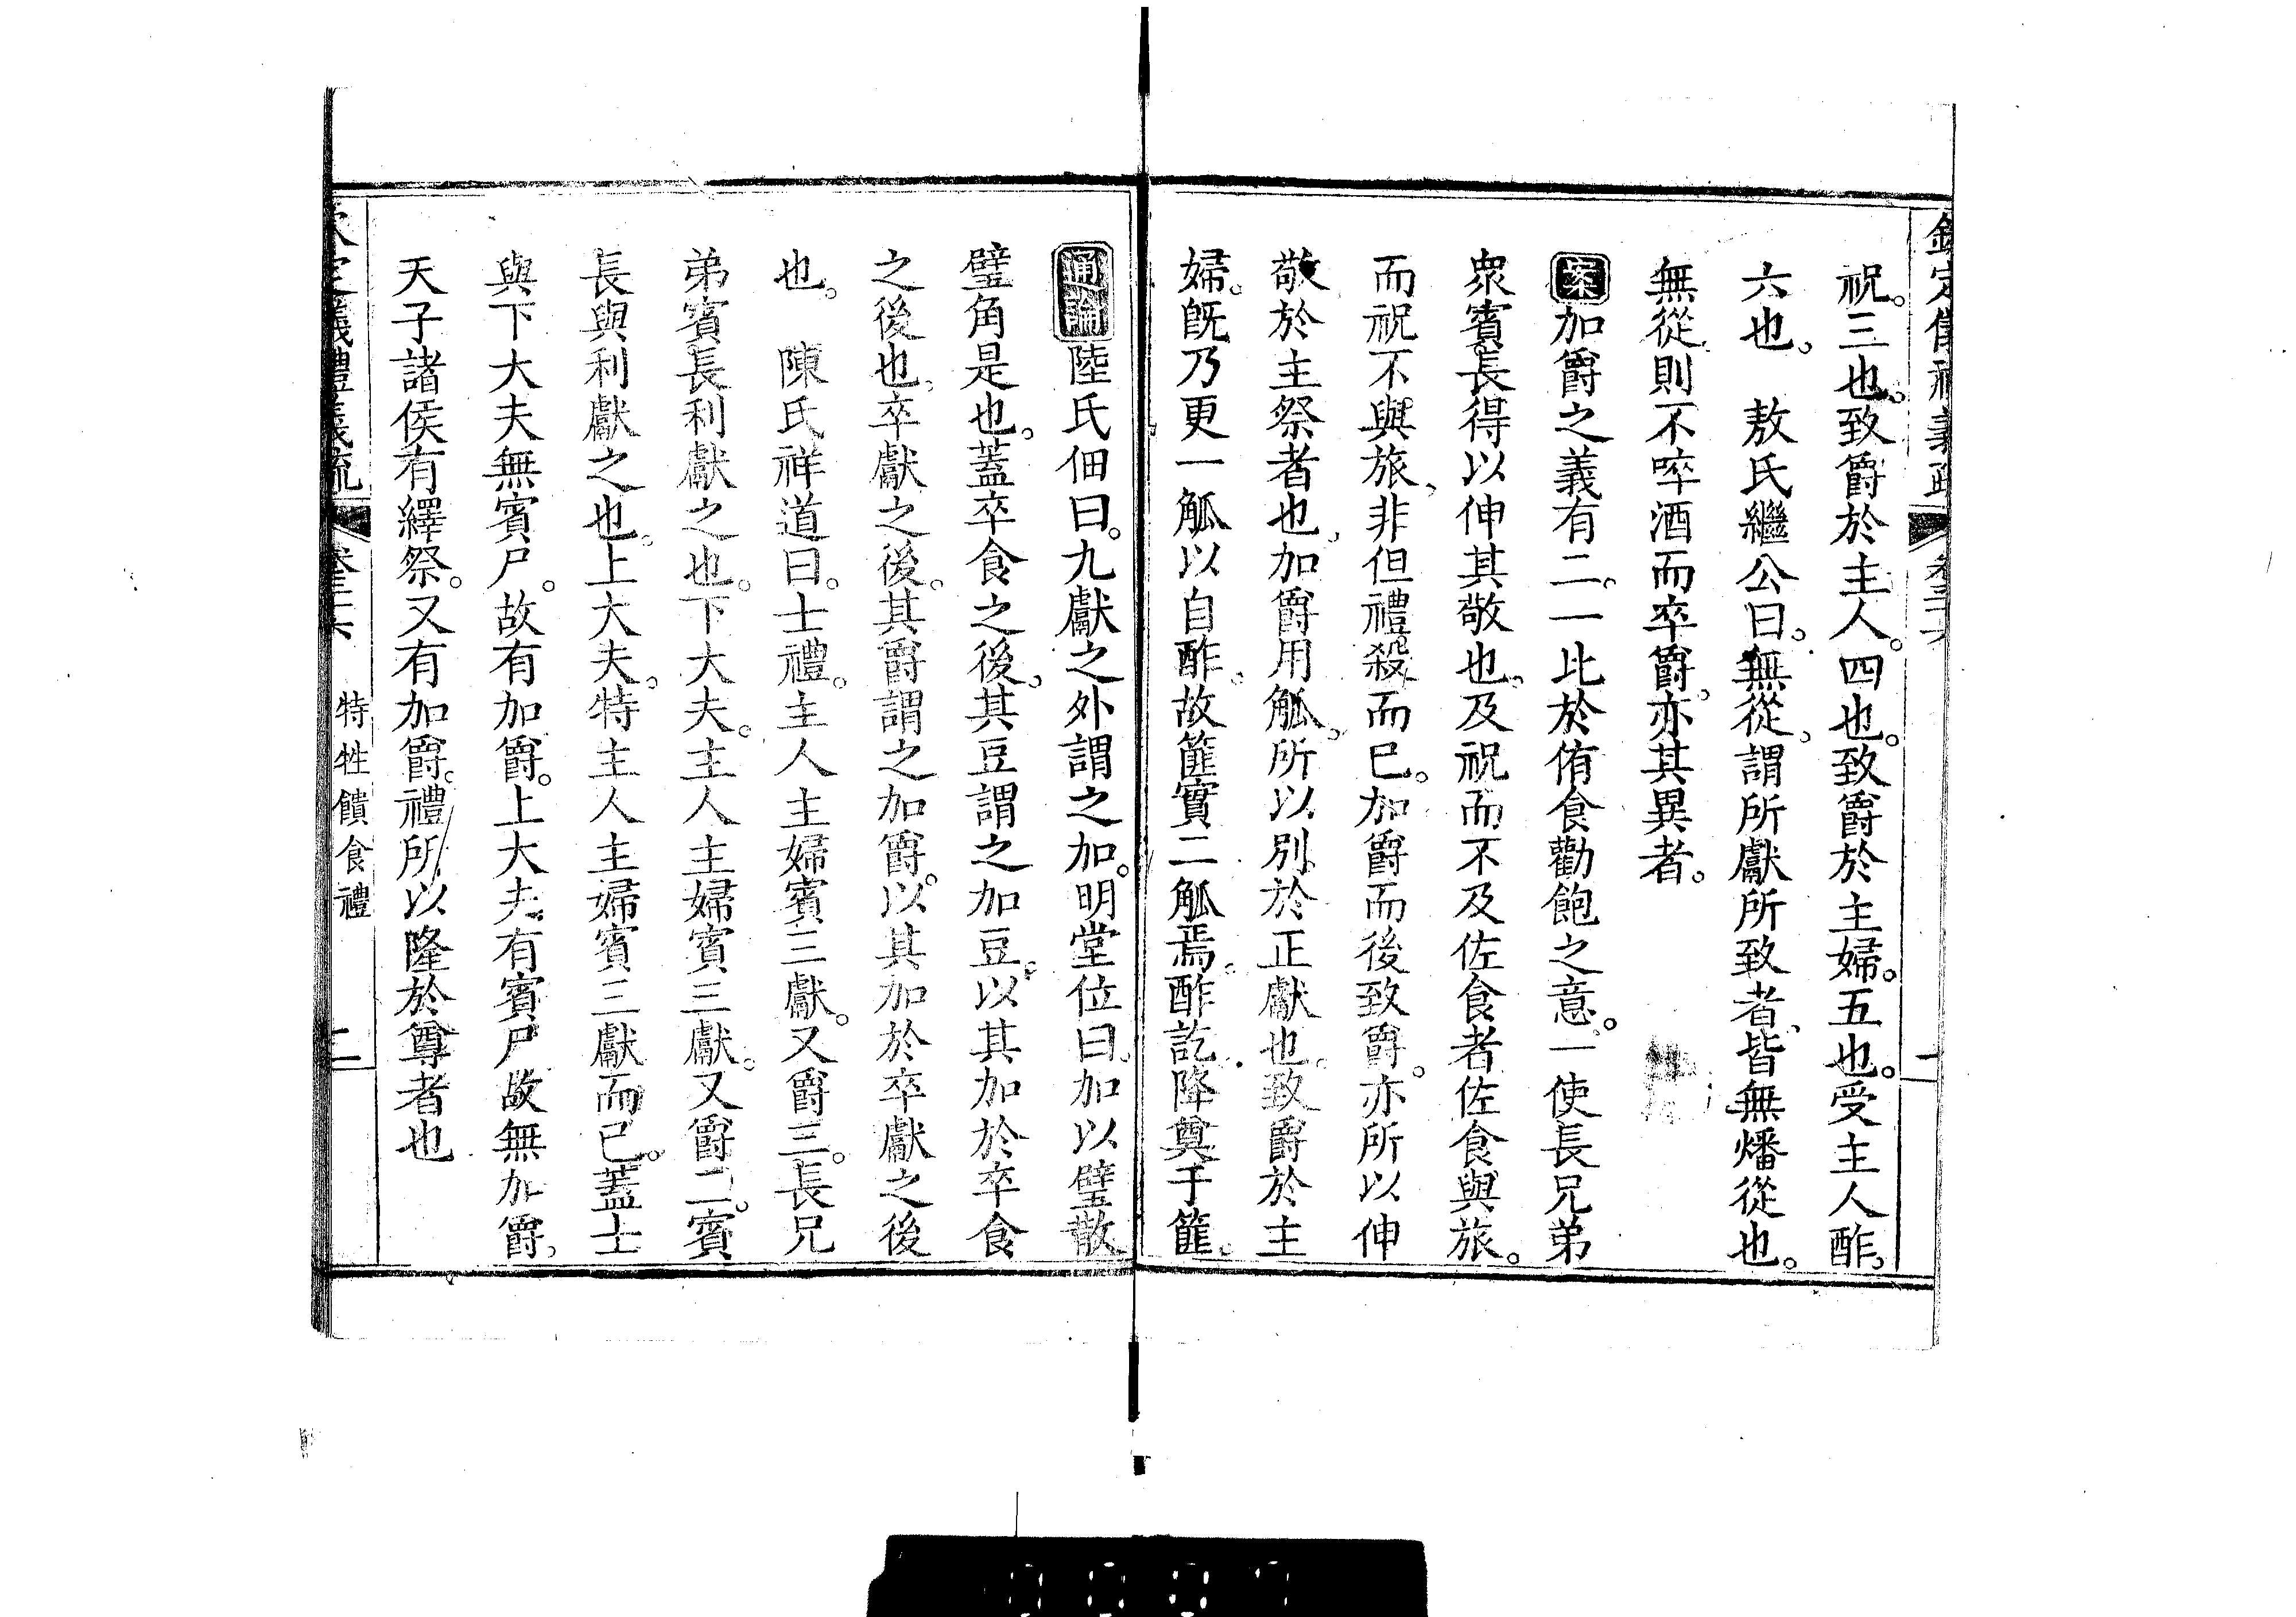 欽定儀禮義疏 卷三十六
祝。三也。致爵於主人。四也。致爵於主婦。五也。受主人酢。
六也。 敖氏繼公曰。無從。謂所獻所致者。皆無燔從也。
無從。則不啐酒而卒爵。亦其異者。
案加爵之義有二。一比於侑食勸飽之意。一使長兄弟
衆賓長得以伸其敬也。及祝而不及佐食者佐食與旅。
而祝不與旅。非但禮殺而已。加爵而後致爵。亦所以伸
敬於主祭者也。加爵用觚。所以別於正獻也。致爵於主
婦。旣乃更一觚以自酢。故篚實二觚焉。酢訖降奠于篚。
通論陸氏佃曰。九獻之外謂之加。明堂位曰。加以璧散
璧角是也。蓋卒食之後。其豆謂之加豆。以其加於卒食
之後也。卒獻之後。其爵謂之加爵。以其加於卒獻之後
也。 陳氏祥道曰。士禮。主人主婦賓三獻。又爵三。長兄
弟賓長利獻之也。下大夫。主人主婦賓三獻。又爵二。賓
長與利獻之也。上大夫。特主人主婦賓三獻而已。蓋士
與下大夫無賓尸。故有加爵。上大夫有賓尸故無加爵。
天子諸侯有繹祭。又有加爵。禮所以隆於尊者也
欽定儀禮義疏 卷三十六 特牲饋食禮 二